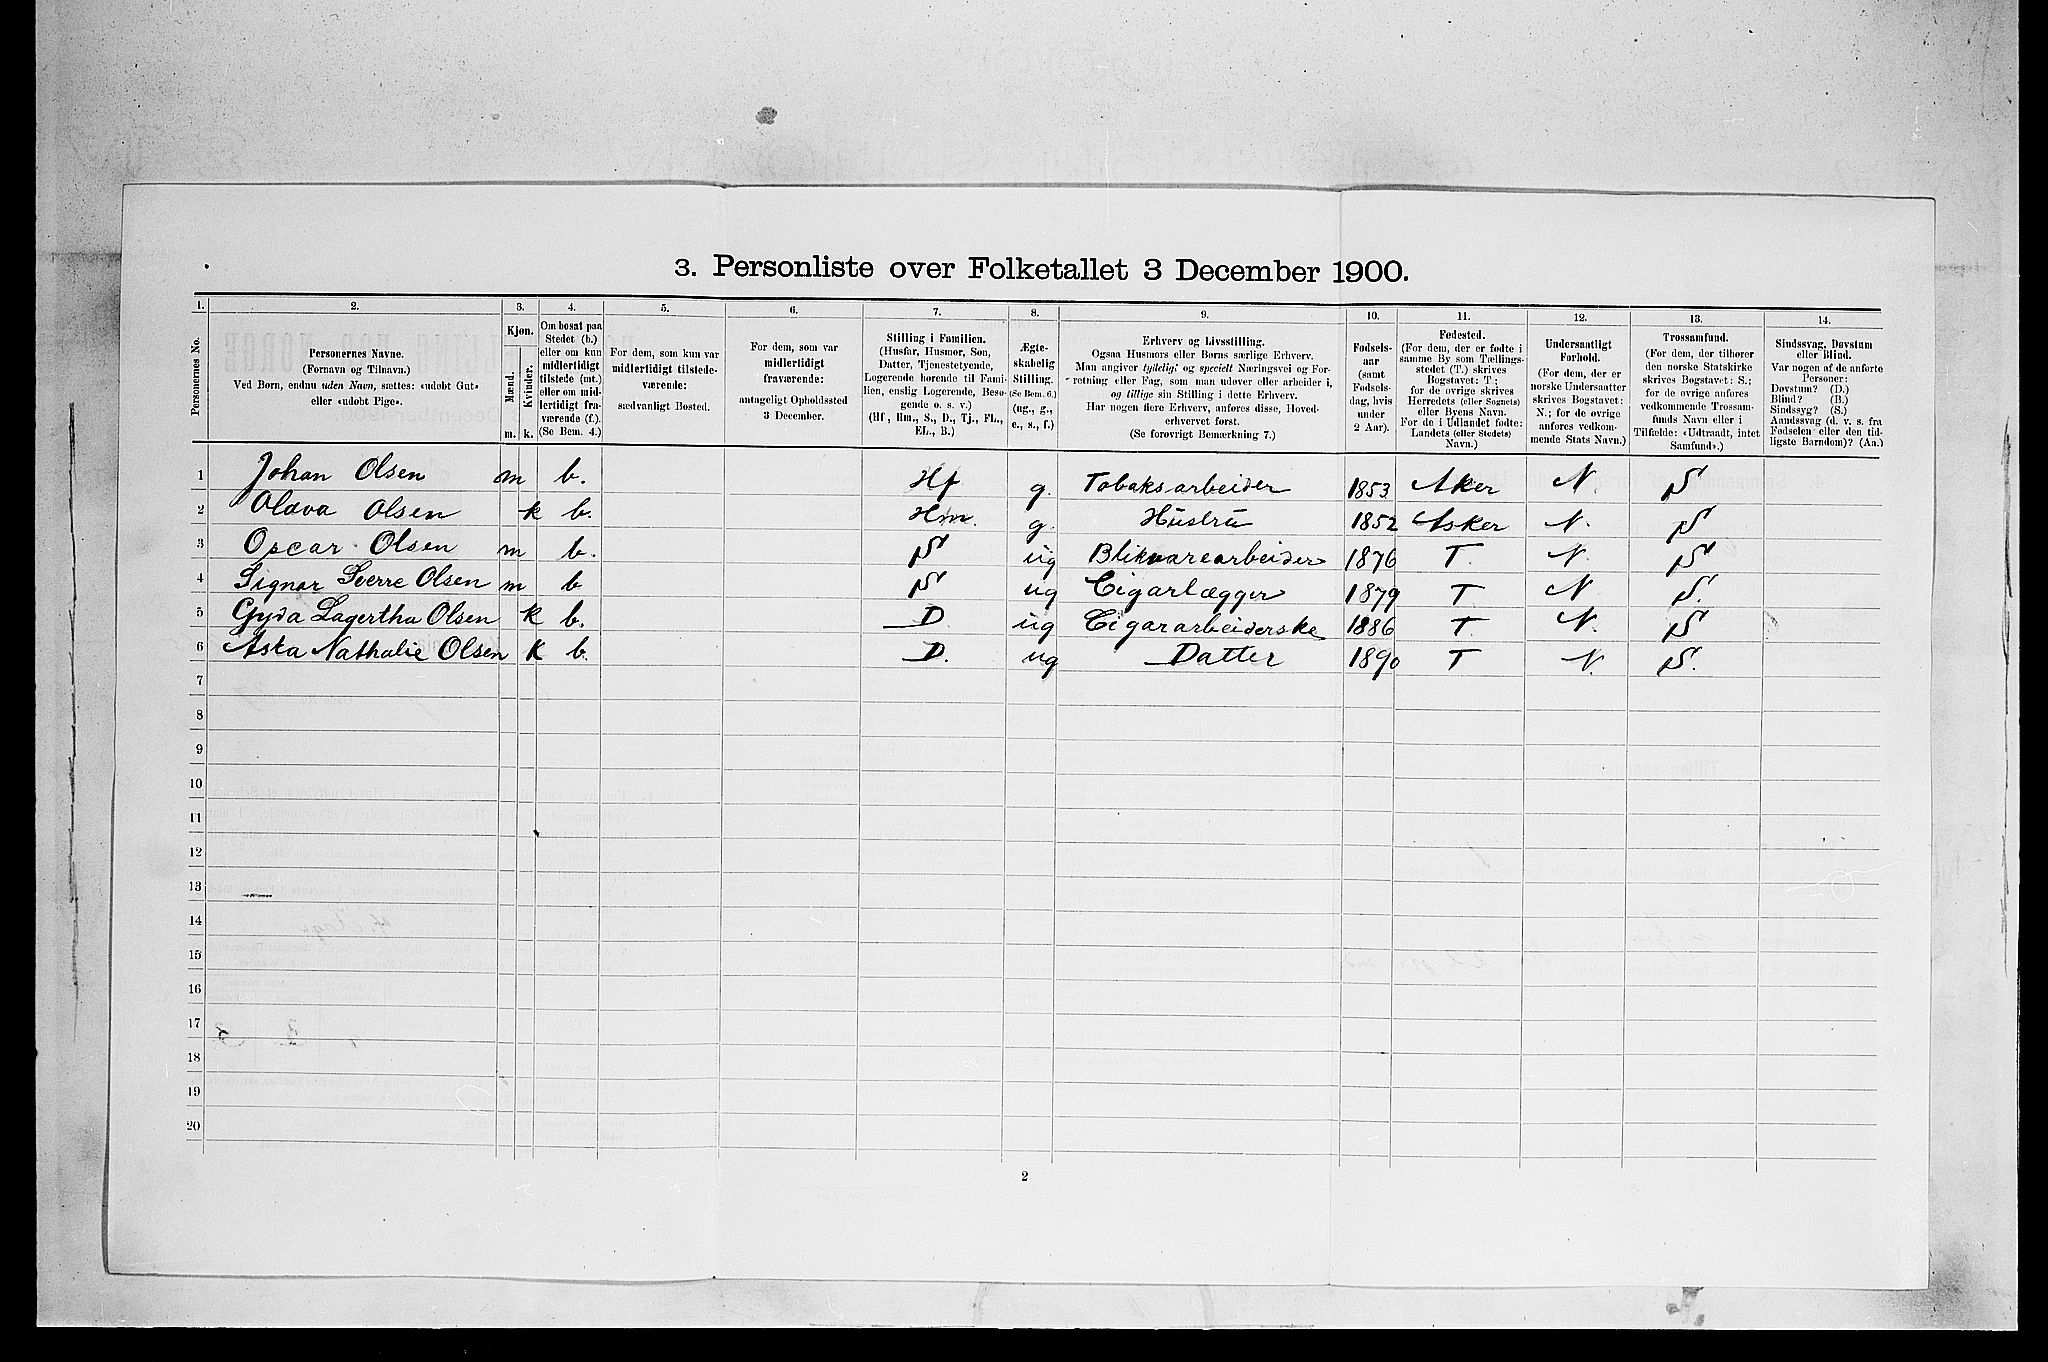 3. Personliste over Folketallet 3 December 1900.
1. 2. 3. 4. 5. 6. 7. 8. 9. 10. 11. 12. 13. 14.
Personernes No.
Personernes Navne.
(Fornavn og Tilnavn.)
Ved Børn, endnu uden Navn, sættes: «udøbt Gut»
eller «udøbt Pige».
Kjøn.
Mænd.
Kvinder.
m. k.
Om bosat paa
Stedet (b.)
eller om kun
midlertidigt
tilstede (mt.)
eller om mid-
lertidigt fra-
værende (f.).
(Se Bem. 4.)
For dem, som kun var
midlertidigt tilstede-
værende:
sædvanligt Bosted.
For dem, som var
midlertidigt
fraværende:
antageligt Opholdssted
3 December.
Stilling i Familien.
(Husfar, Husmor, Søn,
Datter, Tjenestetyende,
Logerende hørende til Fami-
lien, enslig Logerende, Besø-
gende o. s. v.)
(Hf., Hm., S., D., Tj., FL.,
EL., B.)
Ægte-
skabelig
Stilling.
(Se Bem. 6.)
(ug., g.,
e., s., f.)
Erhverv og Livsstilling.
Ogsaa Husmors eller Børns særlige Erhverv.
Man angiver tydeligt og specielt Næringsvei og For-
retning eller Fag, som man udøver eller arbeider i,
og tillige sin Stilling i dette Erhverv.
Har nogen flere Erhverv, anføres disse, Hoved-
erhvervet først.
(Se forøvrigt Bemærkning 7.)
Fødsels-
aar
(samt
Fødsels-
dag, hvis
under
2 Aar).
Fødested.
(For dem, der er fødte i
samme By som Tællings-
stedet (T.) skrives
Bogstavet: T;
for de øvrige skrives
Herredets (eller Sognets)
eller Byens Navn.
For de i Udlandet fødte:
Landets (eller Stedets)
Navn.)
Undersaatligt
Forhold.
(For dem, der er
norske Undersaatter
skrives Bogstavet:
N.; for de øvrige
anføres vedkom-
mende Stats Navn.)
Trossamfund.
(For dem, der tilhører
den norske Statskirke
skrives Bogstavet: S.;
for de øvrige anføres
vedkommende Trossam-
funds Navn eller i
Tilfælde: «Udtraadt, intet
Samfund».)
Sindssvag, Døvstum
eller Blind.
Var nogen af de anførte
Personer:
Døvstum? (D.)
Blind? (B.)
Sindssyg? (S.)
Aandssvag (d. v. s. fra
Fødselen eller den tid-
ligste Barndom)? (Aa.)
1 Johan Olsen m b. Hf g. Tobaksarbeider 1853 Aker N. S
2 Olava Olsen k b. Hm. g. Hustru 1852 Asker N. S
3 Oscar Olsen m b. S ug Blikvarearbeider 1876 T. N. S
4 Signar Sverre Olsen m b S ug Cigarlægger 1879 T N S.
5 Gyda Lagertha Olsen k b. D ug Cigararbeiderske 1886 T. N. S
6 Aska Nathalie Olsen k b. D. ug Datter 1890 T N. S.
7
8
9
10
11
12
13
14
15
16
17
18
19
20
2